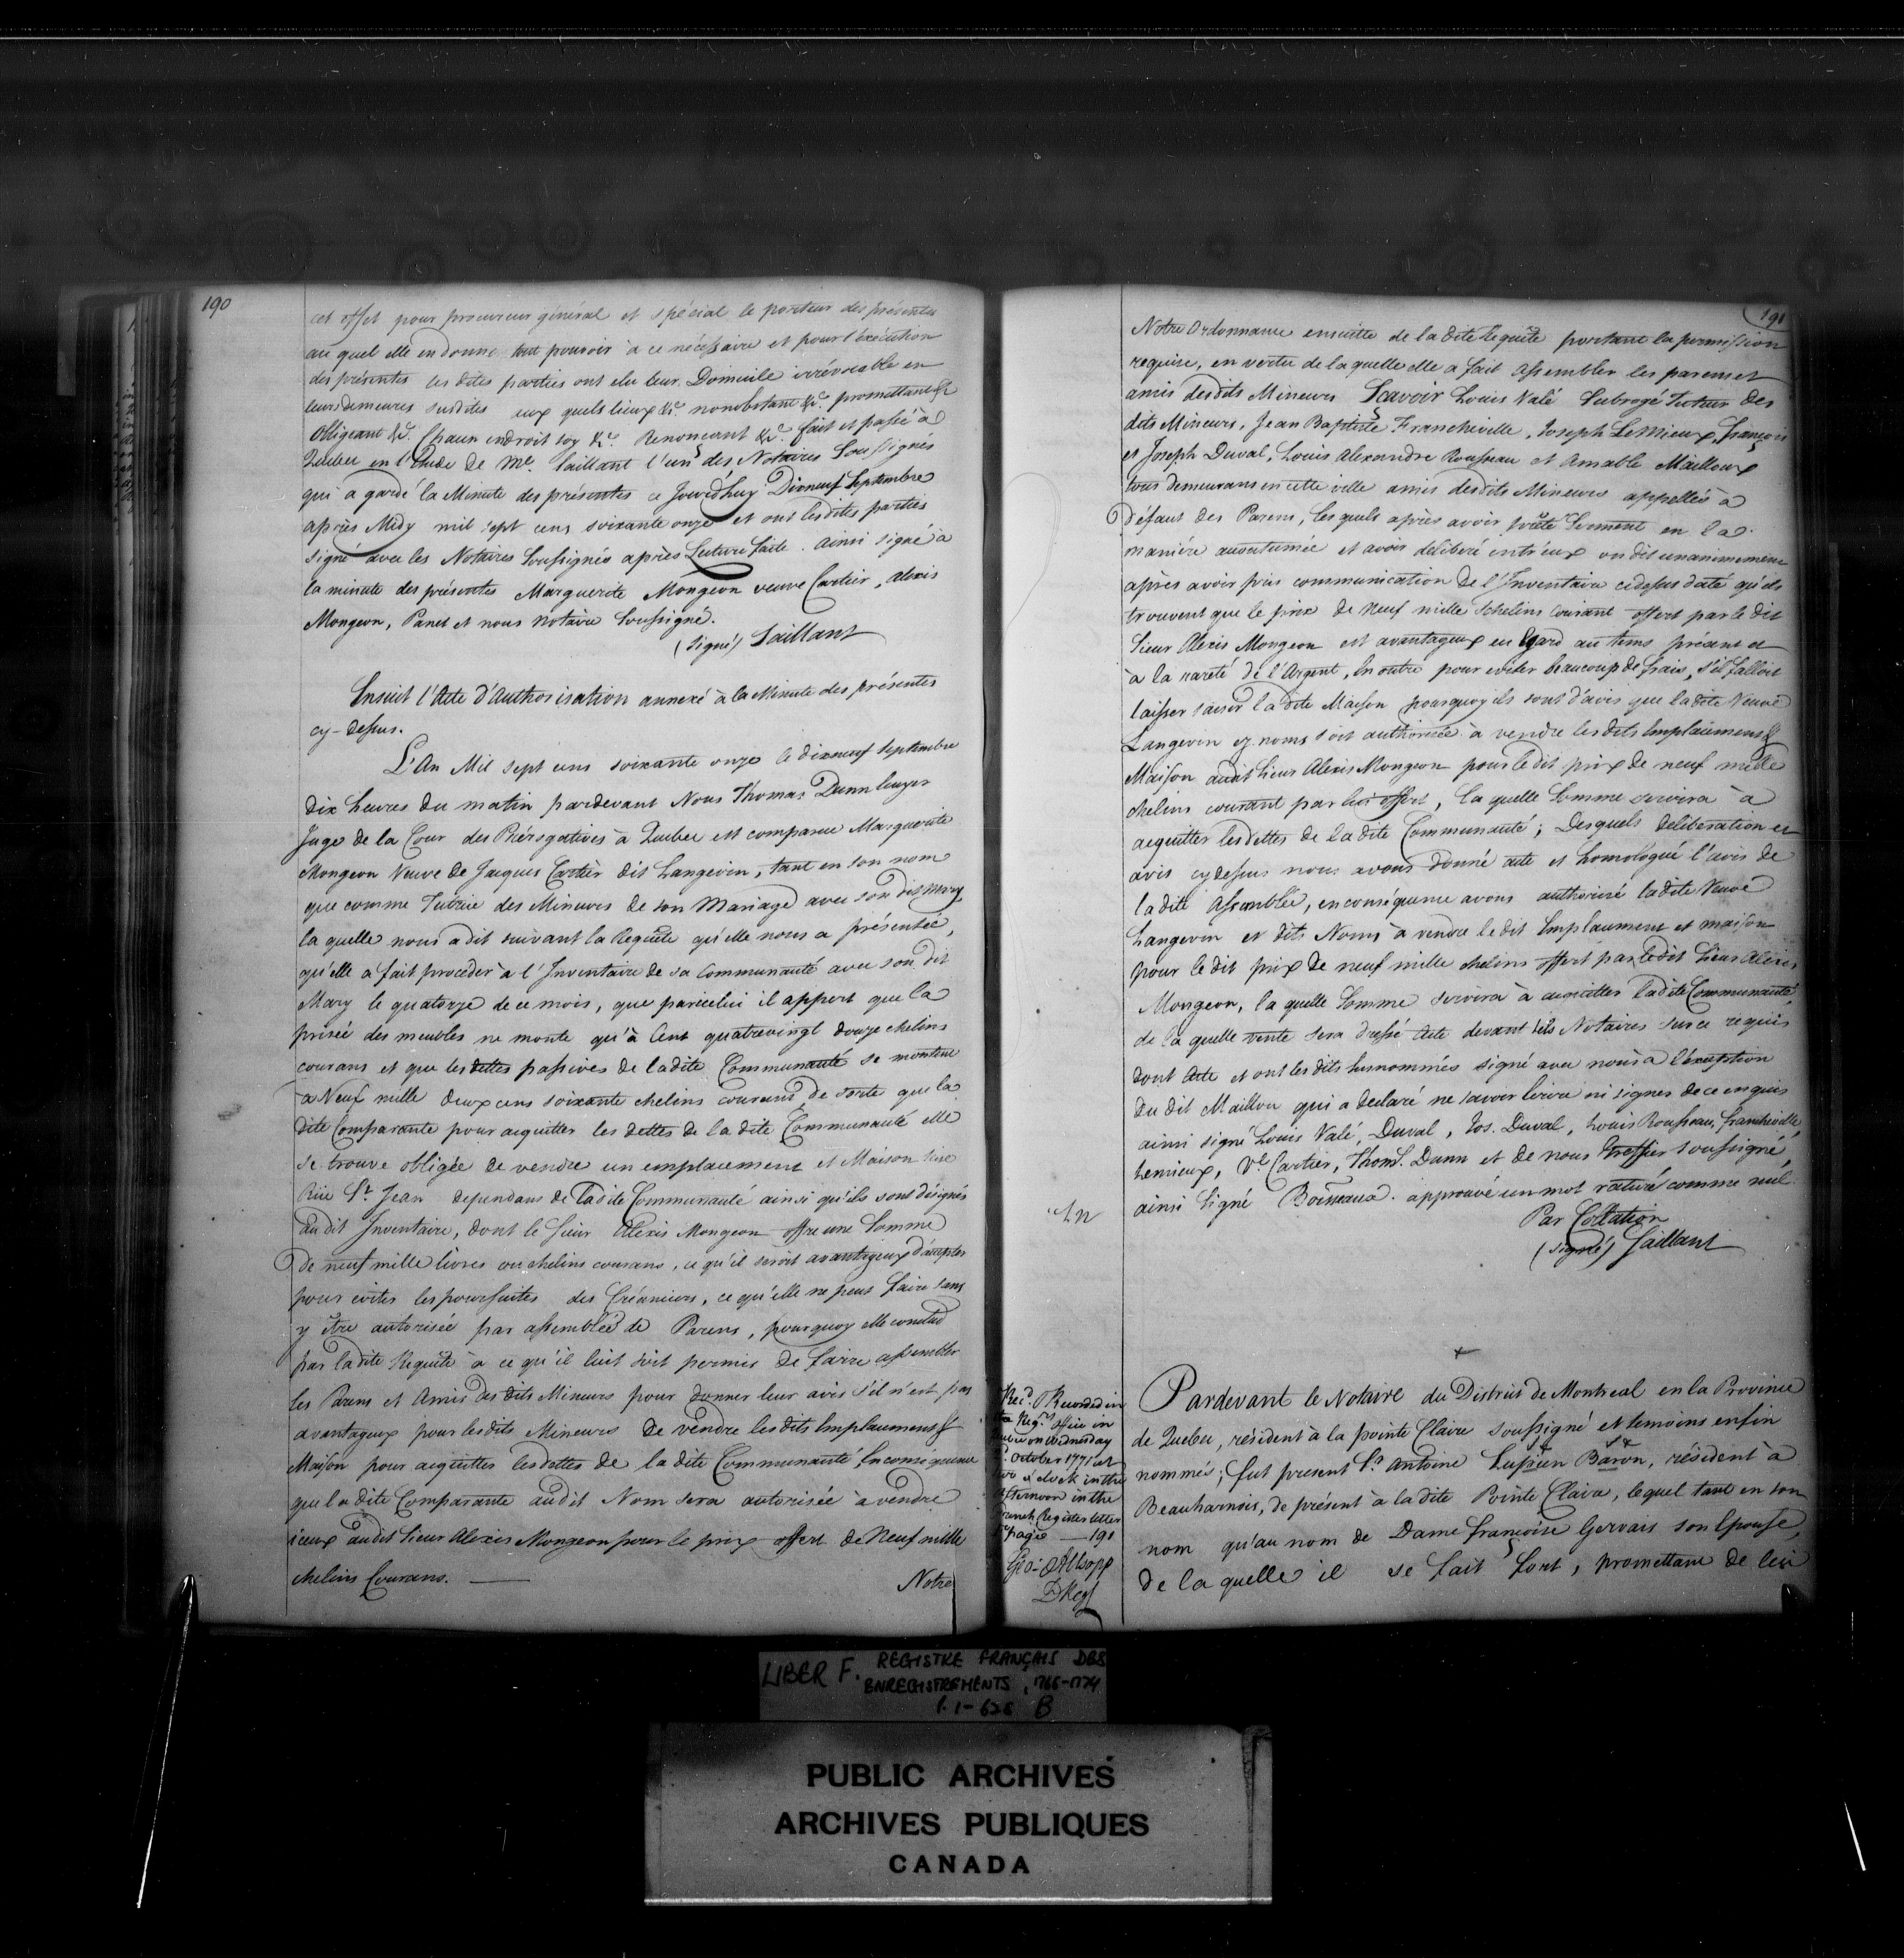 190
cet effet pour procureur général et spécial le porteur des présentes
au quel elle en donne tout pouvoir à ce nécessaire et pour l'éxécution
des présentes les dites parties ont elu leur Domicile irrévocable en
leurs demeures susdites aux quels lieux &c. nonobstant &c. promettant &c
Obligeant &c. Chacun endroit soy &c. Renonçant &c. fait et passé à
Quebec en l'Etude de Me. Saillant l'un des Notaires Soussignés
qui a gardé la Minute des présentes ce Jourdhuy Dixneuf Septembre
après Midy mil sept cens soixante onze et ont lesdites parties
signé avec les Notaires Soussignés après Lecture faite. ainsi signé à
la minute des présentes Marguerite Mongeon veuve Cartier, Alexis
Mongeon, Panet et nous notaire Soussigné.
(signé) Saillant
Ensuit l'Acte d'Authorisation annexé à la Minute des présentes
cy-dessus.
L'An Mil sept cens soixante onze le dixneuf Septembre
dix heures du matin pardevant Nous Thomas Dunn Ecuyer
Juge de la Cour des Prérogatives à Quebec est comparue Marguerite
Mongeon Veuve de Jacques Cartier dit Langevin, tant en son nom
que comme Tutrice des Mineurs de son Mariage avec son dit Mary,
la quelle nous a dit suivant la Requête qu'elle nous a présentée,
qu'elle a fait proceder à l'Inventaire de sa Communauté avec son dit
Mary le quatorze de ce mois, que par icelui il appert que la
prisée des meubles ne monte qu'à Cent quatrevingt douze chelins
courans et que les dettes passives de ladite Communauté se montent
à Neuf mille deux cens soixante chelins courans, de sorte que la
dite Comparante pour acquitter les dettes de la dite Communauté elle
se trouve obligée de vendre un emplacement et Maison sise
Rüe St. Jean dependans de ladite Communauté ainsi qu'ils sont désignés
audit Inventaire, dont le Sieur Alexis Mongeon offre une Somme
de neuf mille livres ou chelins courans, ce qu'il seroit avantageux d'accepter
pour eviter les poursuites des Créanciers, ce qu'elle ne peut faire sans
y être autorisée par assemblée de Parens, pourquoy elle conclud
par ladite Requête à ce qu'il luit soit permis de faire assembler
les Parens et Amis des dits Mineurs pour donner leur avis s'il n'est pas
avantageux pour lesdits Mineurs de vendre lesdits Emplacement &
Maison pour acquitter lesdettes de la dite Communauté En conséquence
que la dite Comparante audit Nom sera autorisée à vendre
iceux audit Sieur Alexis Mongeon pour le prix offert de Neuf mille
chelins Courans.
Notre
191
Notre Ordonnance ensuitte de la dite Requête portant la permission
requise, en vertu de laquelle elle a fait assembler les parens et
amis desdits Mineurs Scavoir Louis Valé Subrogé Tuteur des
dits Mineurs, Jean Baptiste Francheville, Joseph Le Mieux, François
et Joseph Duval, Louis Alexandre Rousseau et Amable Mailloux
tous demeurans en cette ville amis desdits Mineurs appellés à
défaut des Parens, lesquels après avoir prêté Serment en la
manière accoutumée et avoir déliberé entr'eux on dit unanimement
après avoir pris communication de l'Inventaire cidessus daté qu'ils
trouvent que le prix de neuf mille Schelins Courant offert par le dit
Sieur Alexis Mongeon est avantageux eu Egard au tems présent et
à la rareté de l'Argent, En outre pour eviter beaucoup de frais, s'il falloit
laisser saisir la dite Maison pourquoy ils sont d'avis que ladite Veuve
Langevin ez noms soit authorisée à vendre lesdits Emplacement &
Maison audit Sieur Alexis Mongeon pour ledit prix de neuf mille
chelins courant par lui offert, la quelle Somme servira à
acquitter lesdettes de ladite Communauté; Desquels deliberation et
avis cydessus nous avons donné acte et homologué l'avis de
ladite Assemblée, en conséquence avons authorisé ladite Veuve
Langevin et dits Noms à vendre le dit Emplacement et maison
pour le dit prix de neuf mille chelins offert par ledit Sieur Alexis
Mongeon, la quelle Somme servira à acquitter ladite Communauté,
de la quelle vente sera dressé Acte devant Notaires sur ce requis
dont Acte et ont les dits surnommés signé avec nous à l'exception
du dit Maillou qui a declaré ne savoir Ecrire ni signer de ce enquis
ainsi signé Louis Valé, Duval, Jos. Duval, Louis Rousseau, Francheville,
Lemieux, Ve. Cartier, Thoms. Dunn et de nous Greffier soussigné,
ainsi Signé Boisseaux. approuvé un mot raturé comme nul.
Par Collation
(signé) Saillant
Recd. & Recorded in
the Regr. Office in
Quebec on Wednesday
October 1771 at
two o'clock in the
Afternoon in the
French Register letter
F page — 191
Geo: Allsopp
D Regr
Pardevant le Notaire du District de Montreal en la Province
de Quebec, résident à la pointe Claire soussigné et temoins enfin
nommés; fut present Sr. Antoine Lupien Baron, résident à
Beauharnois, de présent à la dite Pointe Claire, lequel tant en son
nom qu'au nom de Dame françoise Gervais son Epouse,
de la quelle il se fait fort, promettant de lui
LIBER F. REGISTRE FRANÇAIS DES
ENREGISTREMENTS, 1766-1774
P. 1-626 B
PUBLIC ARCHIVES
ARCHIVES PUBLIQUES
CANADA